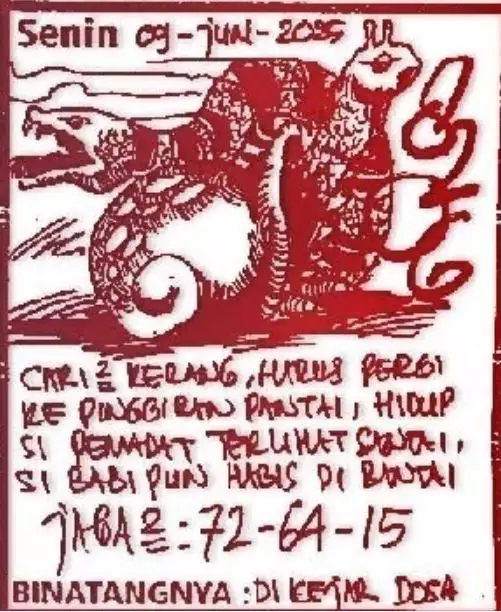 Senin 09-juni-2025
CARI2 KERANG, HARUS PERGI
KE PINGGIRAN PANTAI, HIDUP
SI PEMADAT TERLIHAT SANTAI,
SI BABI PUN HABIS DI BANTAI
jAGA2:72-64-15
BINATANGNYA : DI KEJAR DOSA